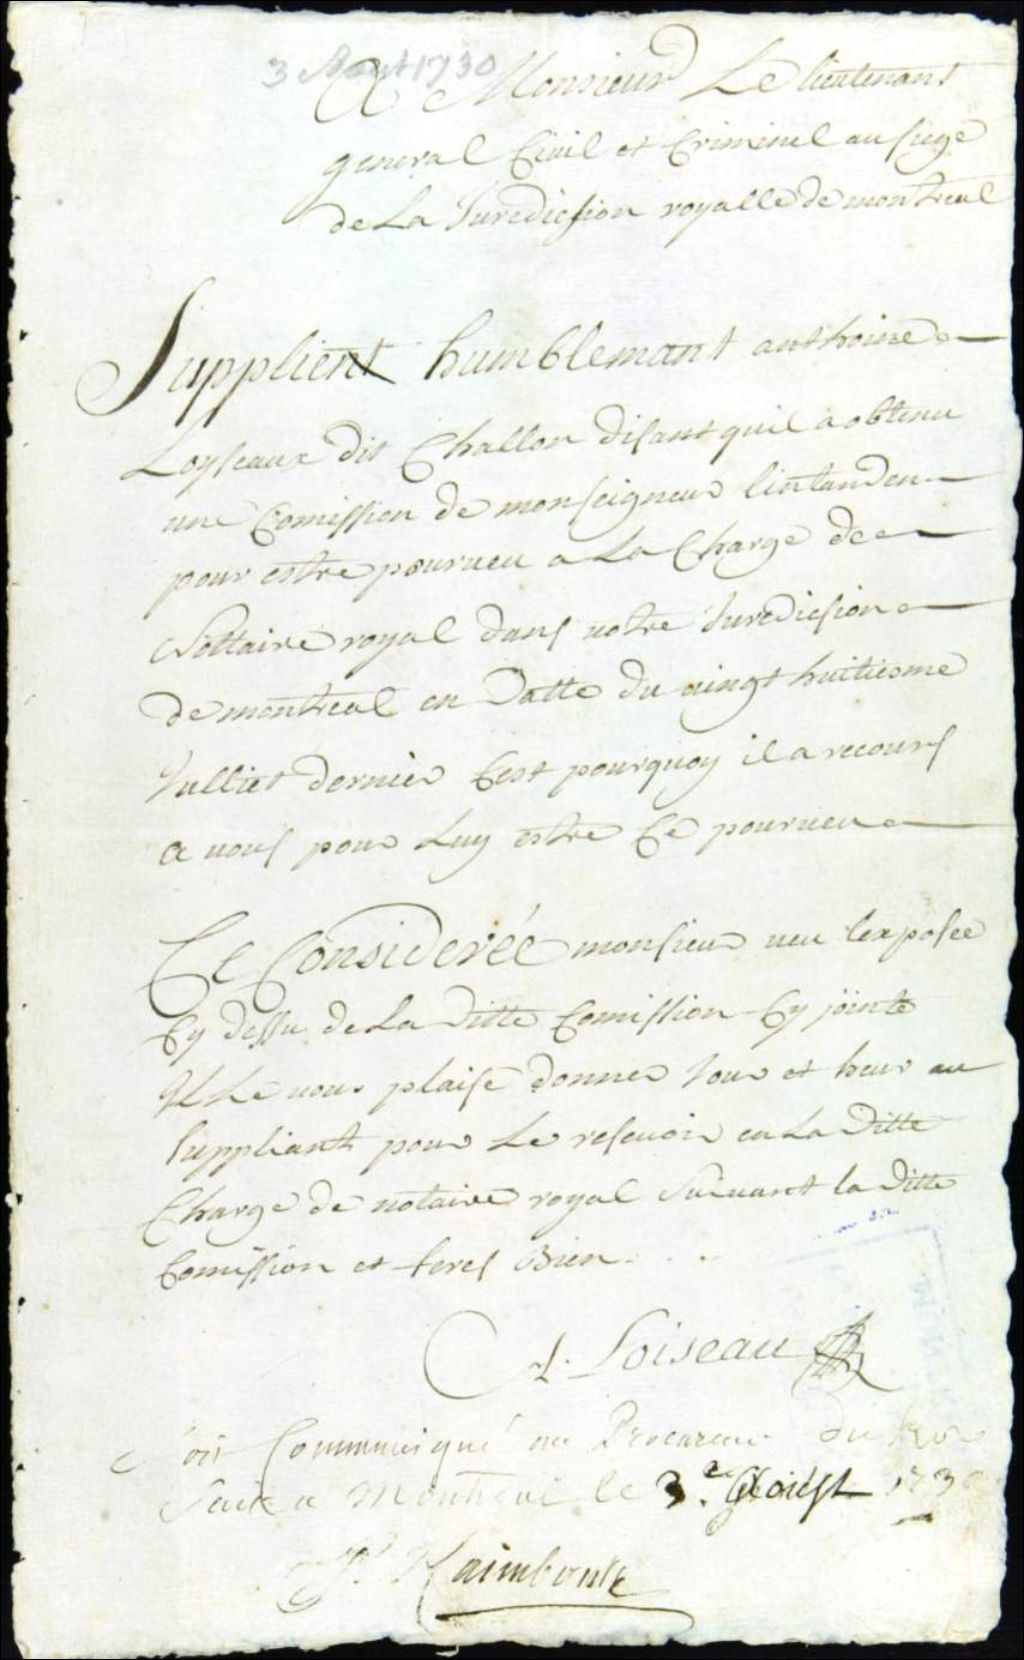 3 Aout 1730
A Monsieur Le lieutenant
general Civil et Criminel au siege
de La Jurediction royalle de montreal
Supplient humblemant anthoine
Loyseaux dit Challon disant quil a obtenu
une Comission de monseigneur lintanden
pour estre pourveu a La Charge de
Nottaire royal dans votre Juredicsion
de montreal en Datte du vingt huitiesme
Julliet dernier Cest pourquoy il a recours
a vous pour Luy estre Ce pourveu
Ce Considerée monsieur veu lexposée
Cy dessu de La ditte Comission Cy jointe
Il Le vous plaise donner Jour et heur au
Suppliant pour Le resevoir en La ditte
Charge de notaire royal Suivant la ditte
Comission et feres Bien
A. Loiseau
Soit Communiqué au Procureur du Roy
Fait a Montreal le 3.e Aoust 1730
P. Raimbault